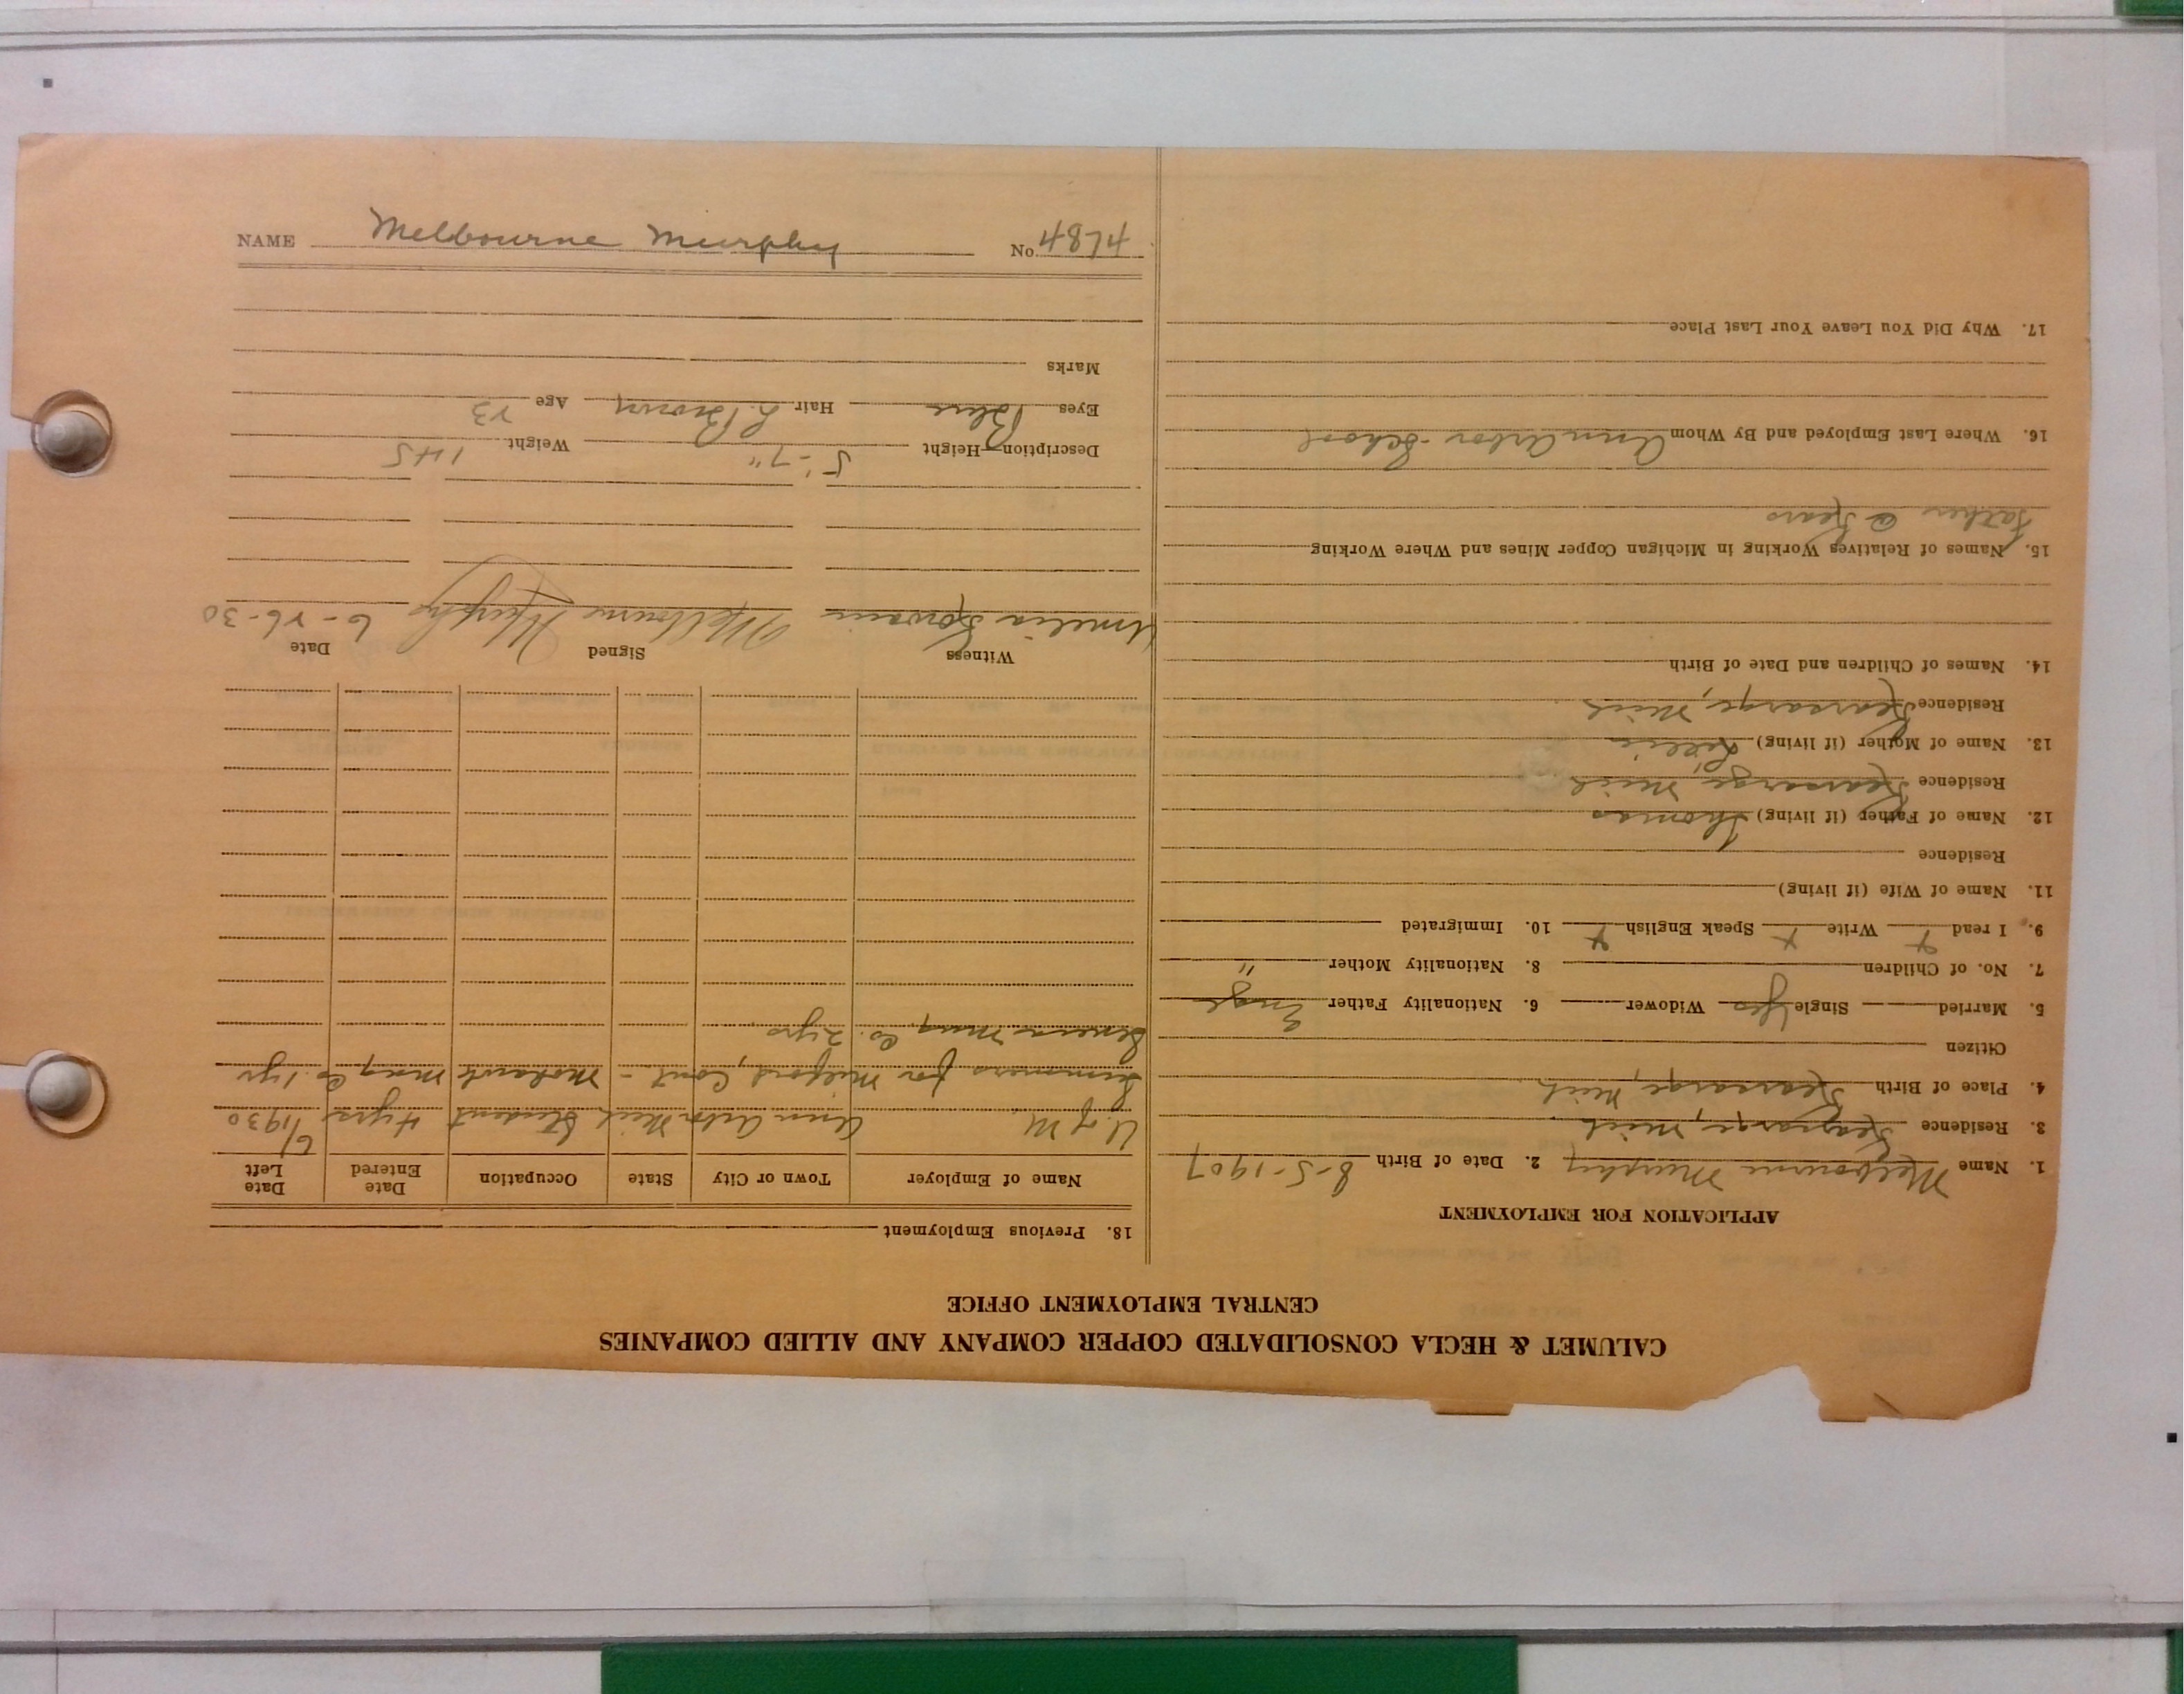 CALUMET & HECLA CONSOLIDATED COPPER COMPANY AND ALLIED COMPANIES
CENTRAL EMPLOYMENT OFFICE
APPLICATION FOR EMPLOYMENT
1. Name Melbourne Murphy 2. Date of Birth 8-5-1907
3. Residence Kearsarge, Mich
4. Place of Birth Kearsarge, Mich
Citizen
5. Married Single Yes Widower 6. Nationality Father Engl
7. No. of Children 8. Nationality Mother "
9. I read x Write x Speak English x 10. Immigrated
11. Name of Wife (if living)
Residence
12. Name of Father (if living) Thomas
Residence Kearsarge, Mich
13. Name of Mother (if living) Lillie
Residence Kearsarge, Mich
14. Names of Children and Date of Birth
15. Names of Relatives Working in Michigan Copper Mines and Where Working
Father @ Kears
16. Where Last Employed and By Whom Ann Arbor - School
17. Why Did You Leave Your Last Place
18. Previous Employment
Name of Employer Town or City State Occupation Date Entered Date Left
U of M Ann Arbor Mich Student 4 yrs 6/1930
Summers for Milford, Cont - Mohawk Mng Co. 1 yr
Seneca Mng. Co. 2 yrs
Witness Signed Date
Amelia Melbourne Murphy 6-26-30
Description—Height 5'-7" Weight 145
Eyes Blue Hair L. Brown Age 23
Marks
NAME Melbourne Murphy No. 4874